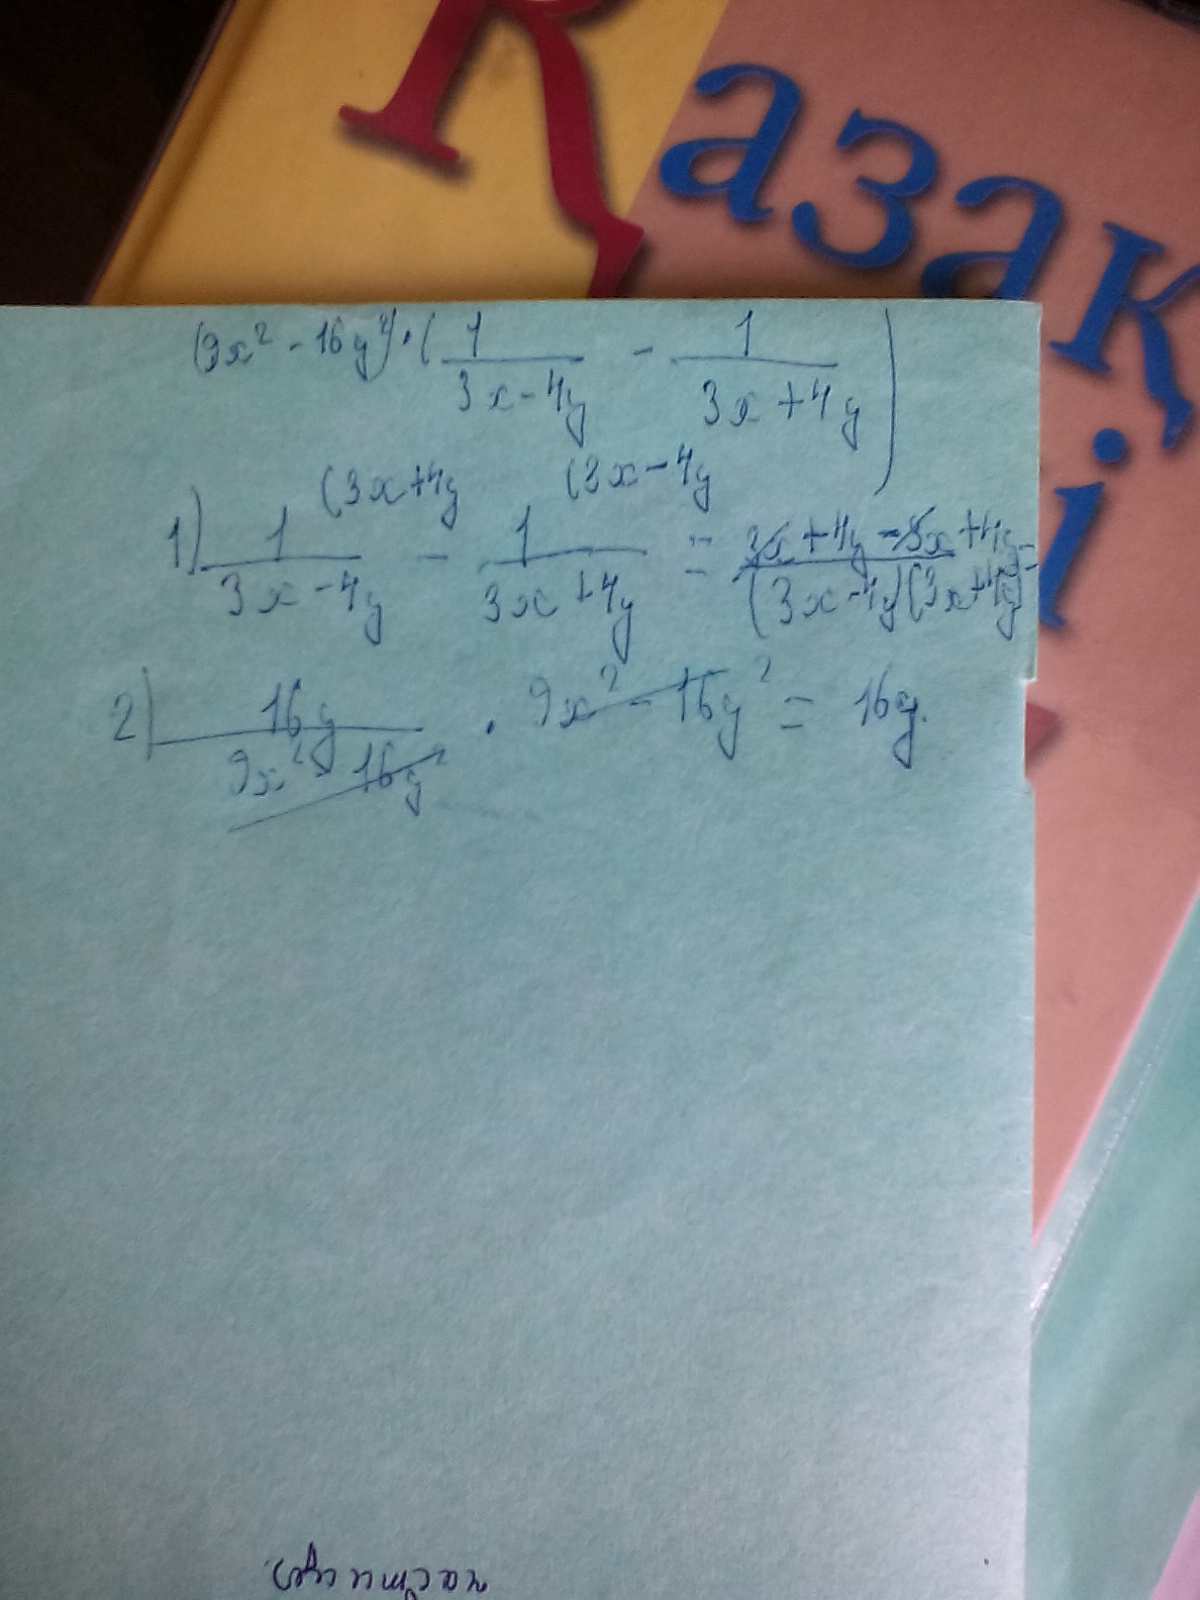 Қазақ
і
(9x² - 16y²) · ( 1/(3x - 4y) - 1/(3x + 4y) )
(3x+4y (3x-4y
1) 1/(3x - 4y) - 1/(3x + 4y) = (3x + 4y - 3x + 4y)/((3x - 4y)(3x + 4y)) =
2) 16y/(9x² - 16y²) · 9x² - 16y² = 16y.